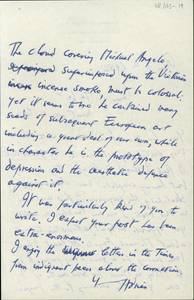 The cloud covering Michael Angelo,
superimposed upon the Victorian
incense smoke must be colossal.
Yet it seems to me he contained many
seeds of subsequent European art
including a great deal of our own, while
in character he is the prototype of
depression and the aesthetic defence
against it.
It was particularly kind of you to
write. I expect your post has been
extra-enormous.
I enjoy the letters in the Times
from indignant peers above the